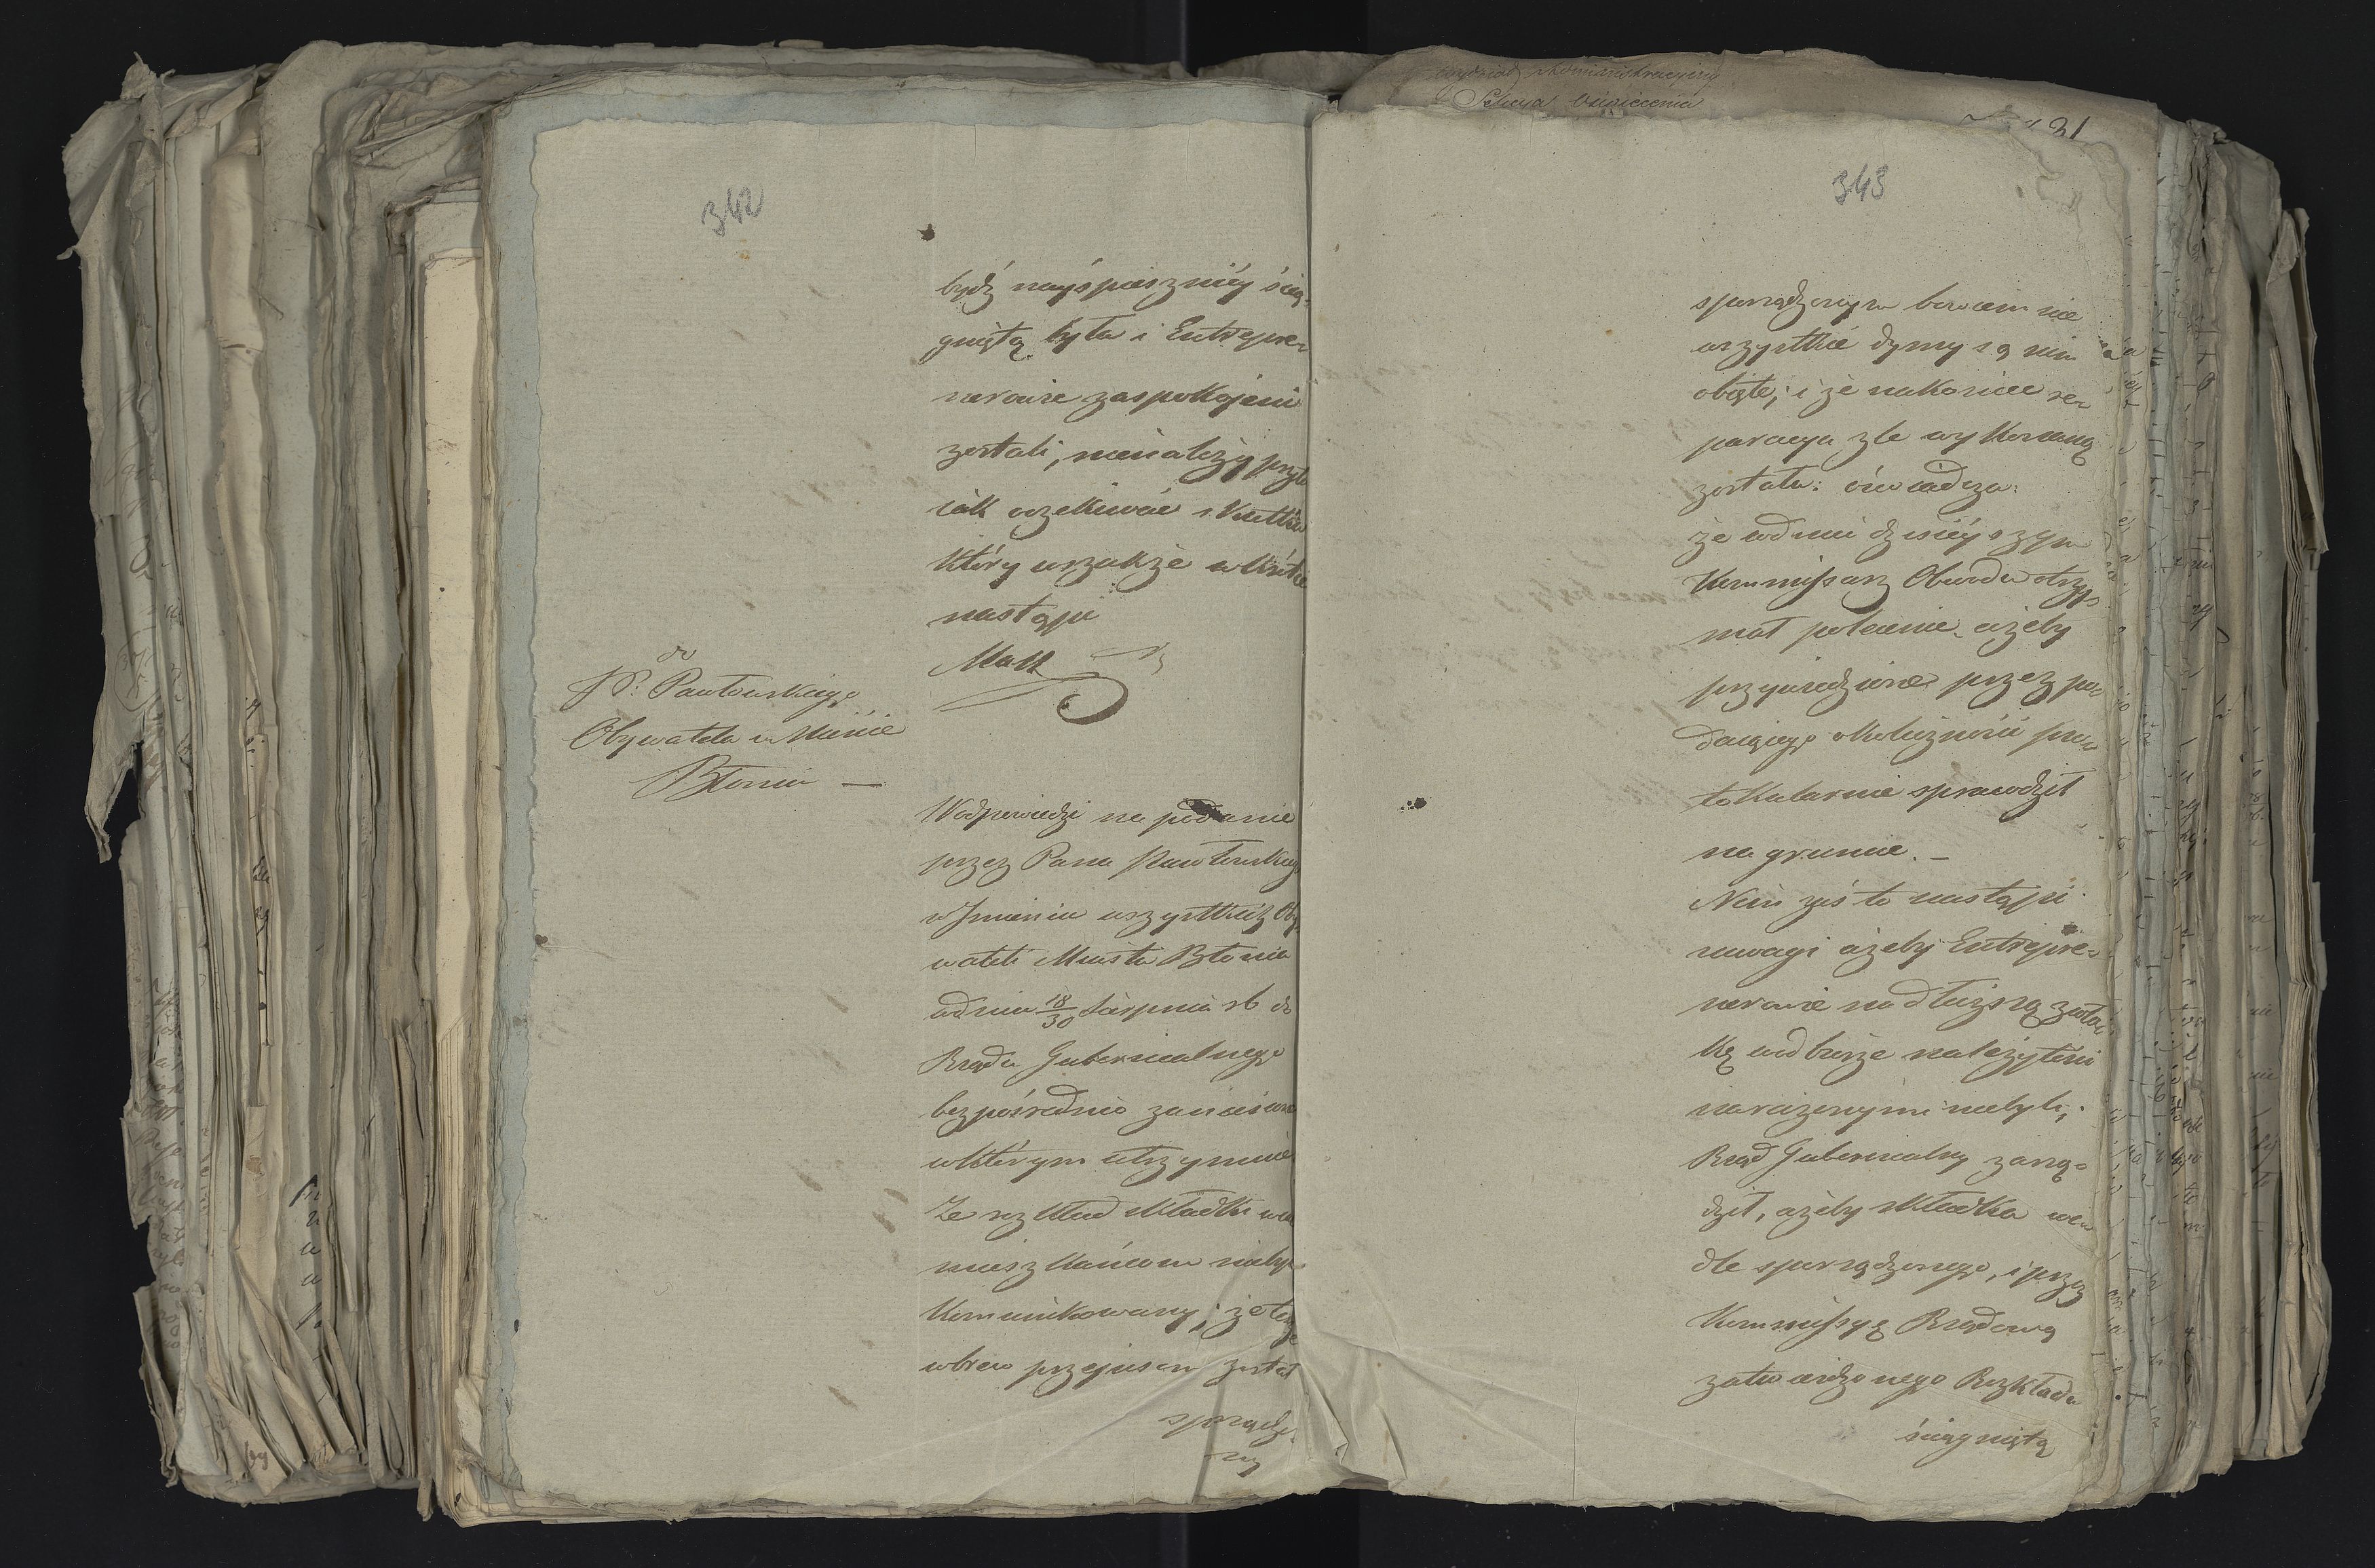 342
bydź nayśpieszniéy ścią-
gniętą była i Entrepre-
nerowie zaspokojeni
zostali, nienależy przeto
iak oczekiwać skutku
który wszakże wkrótce
nastąpi
Mak
do
JP: Pawłowskiego
Obywatela w Mieście
Błoniu —
Wodpowiedzi na podanie
przez Pana Pawłowskiego
w Imieniu wszystkich Oby-
wateli Miasta Błonia
w dniu 18/30 Sierpnia rb do
Rządu Gubernialnego
bezpośrednio zaniesione
wktórym utrzymuie
Że rozkład składki
mieszkańcom niebył
komunikowany; że tenże
wbrew przepisom został
sporządzo-
ny
Wydział Administracyjny
Sekcya
31
343
sporządzonym bowiem nie
wszystkie dymy są nim
obięte; i że nakoniec re-
paracya źle wykonaną
została: oświadcza:
że w dniu dzisiéyszym
Kommissarz Obwodu otrzy-
mał polecenie, ażeby
przywiedzione przez po-
daiącego okoliczności pro-
tokularnie sprawdził
na gruncie. —
Nim zaś to nastąpi
z uwagi ażeby Entrepre-
nerowie na dłuższą zwło-
kę w odbiorze należytości
narażonymi niebyli;
Rząd Gubernialny zarzą-
dził, ażeby składka we-
dle sporządzonego, i przez
Kommissyę Rządową
zatwierdzonego Rozkładu
ściągniętą